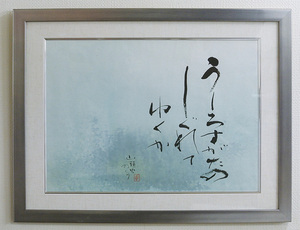 うしろすがたの
しぐれて
ゆくか